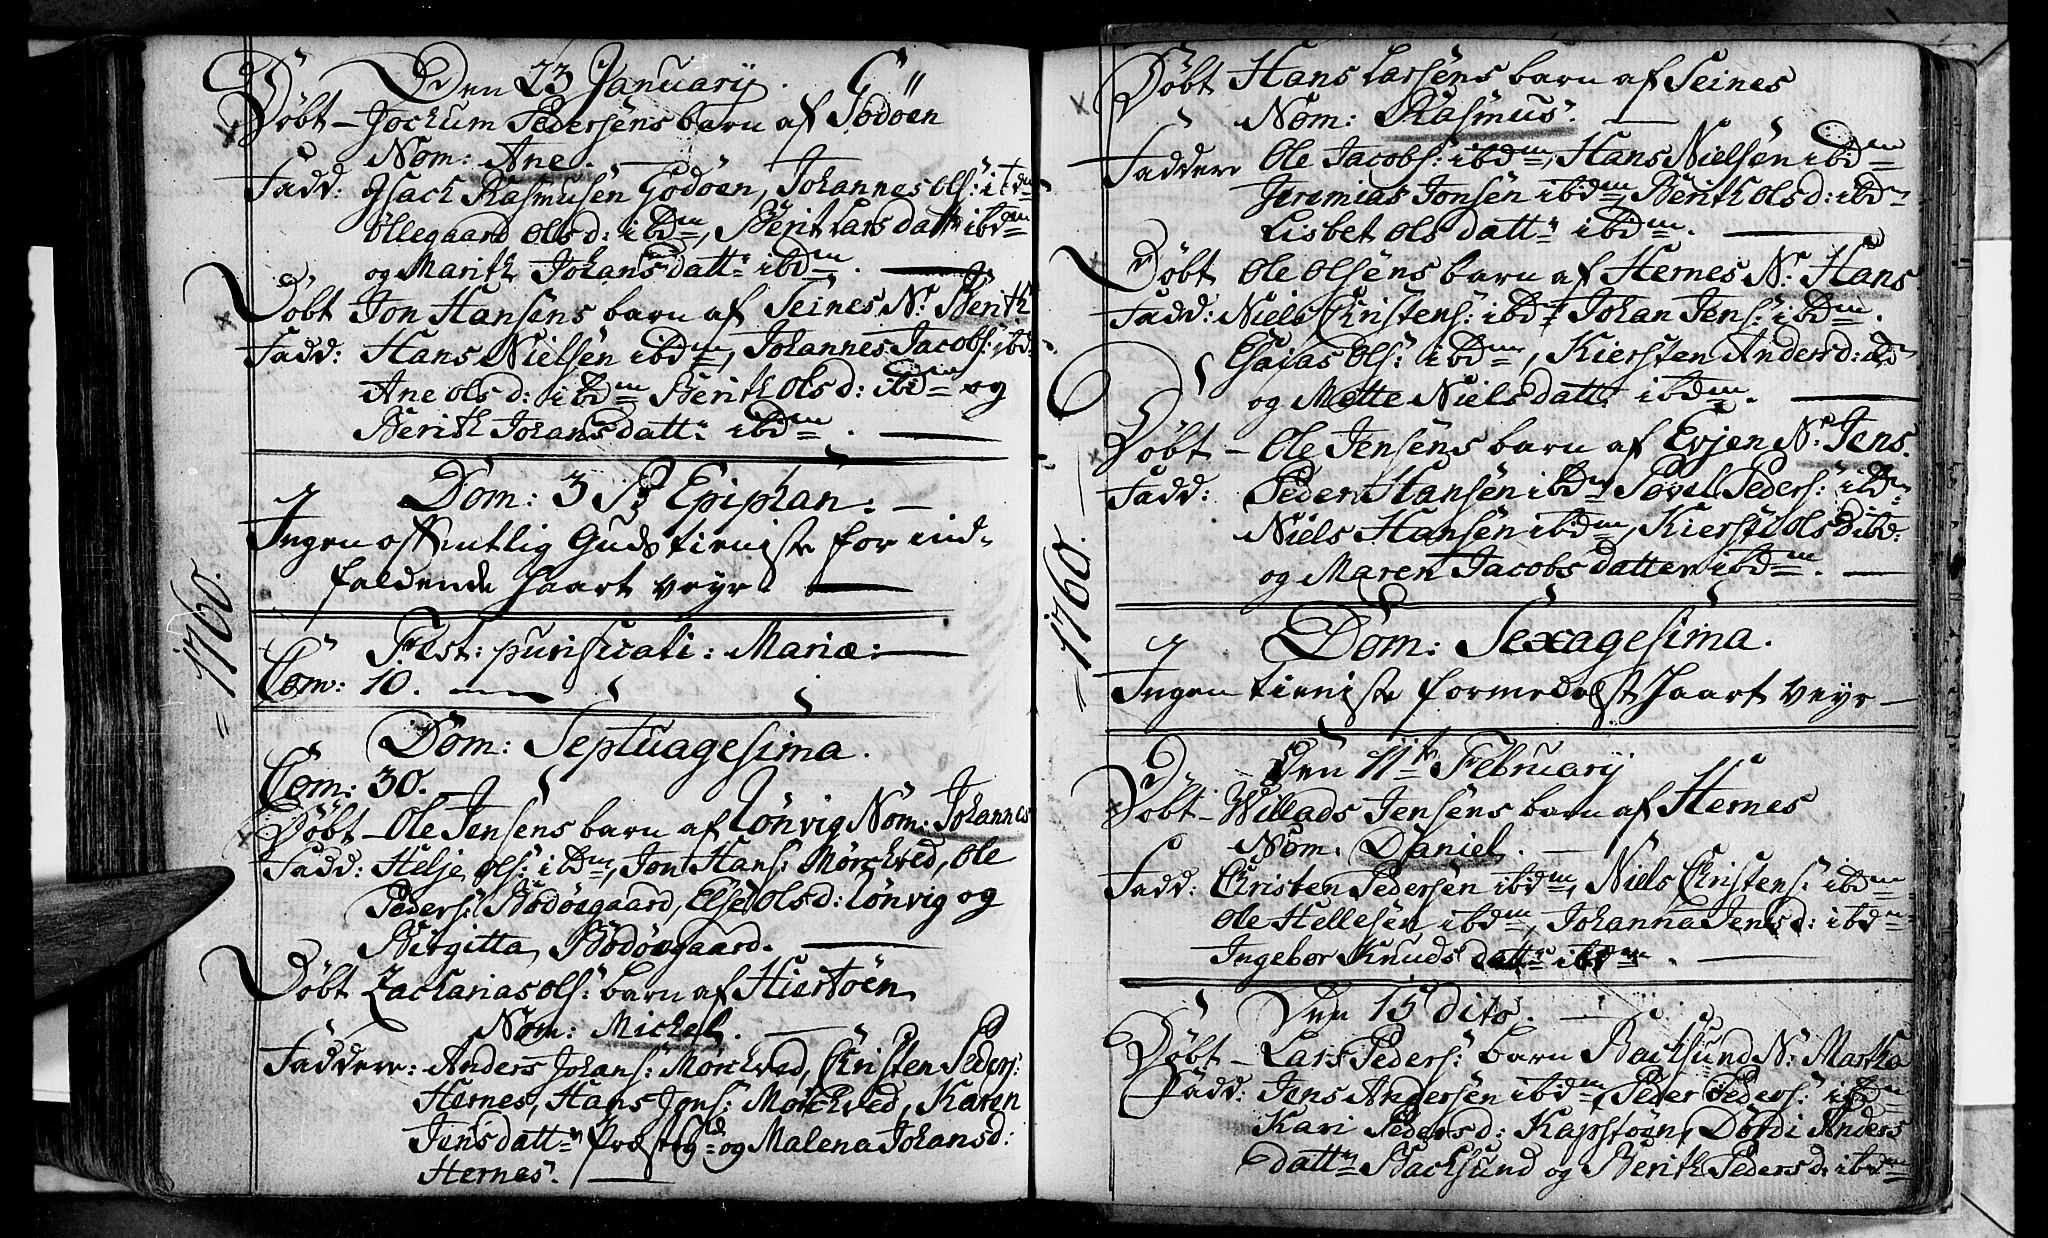 = 1760.
Den 23 Januarij.
Døbt – Jochum Pedersens barn af Godøen
Nom: Ane.
Fadd: Isach Rasmusen Godøen, Johannes Ols: ibdm
Ollegaard Olsd: ibdm, Berit Lars datt ibdm
og Marith Johans datt: ibdm.
Døbt Jon Hansens barn af Seines N: Berith
Fadd: Hans Nielsen ibdm, Johannes Jacobs: ibd:
Ane Olsd: ibdm Berith Olsd: ibdm og
Berith Johans datt: ibdm.
Dom: 3 P Epiphan:
Ingen offentlig Guds tieniste for ind-
faldende haart veyr
Fest: purificati: Mariæ:
Com: 10.
Dom: Septuagesima.
Com: 30.
Døbt – Ole Jensens barn af Lønvig Nom: Johannes
Fadd: Helje Ols: ibdm, Jon Hans: Mørchved, Ole
Peders: Bodøegaard, Else Olsd: Lønvig og
Birgitta Bodøegaard.
Døbt Zacharias Ols: barn af Hiertøen
Nom: Michel.
Faddere: Anders Johans: Mørchved, Christen Peders:
Hernes, Hans Jons: Mørchved, Karen
Jens datt: Præstegd: og Malena Johansd:
Hernes.
= 1760.
Døbt Hans Larsens barn af Seines
Nom: Rasmus.
Faddere Ole Jacobs: ibdm, Hans Nielsen ibdm
Jeremias Jonsen ibdm, Berith Olsd: ibd
Lisbet Ols datt: ibdm.
Døbt Ole Olsens barn af Hernes N: Hans
Fadd: Niels Christens: ibd: Johan Jens: ibdm.
Esaias Ols: ibdm, Kiersten Andersd: ibd
og Mette Niels datt: ibdm.
Døbt – Ole Jensens barn af Evjen N: Jens.
Fadd: Peder Hansen ibdm, Povel Peders: ibdm
Niels Hansen ibdm, Kiersti Olsd ibd:
og Maren Jacobs datter ibdm.
Dom: Sexagesima.
Ingen tieniste formedelst haart veyr –
Den 11te February
Døbt – Willads Jensens barn af Hernes
Nom. Daniel.
Fadd: Christen Pedersen ibdm, Niels Christens: ibdm
Ole Hellesen ibdm, Johanna Jensd: ibdm
Ingebor Knuds datt: ibdm.
Den 15 dito.
Døbt – Lars Peders: barn Bachsund N: Martha
Fadd: Jens Andersen ibdm, Peder Peders: ibdm
Kari Pedersd: Kapstøen, Dordi Anders
datt: Bachsund og Berith Pedersd: ibdm